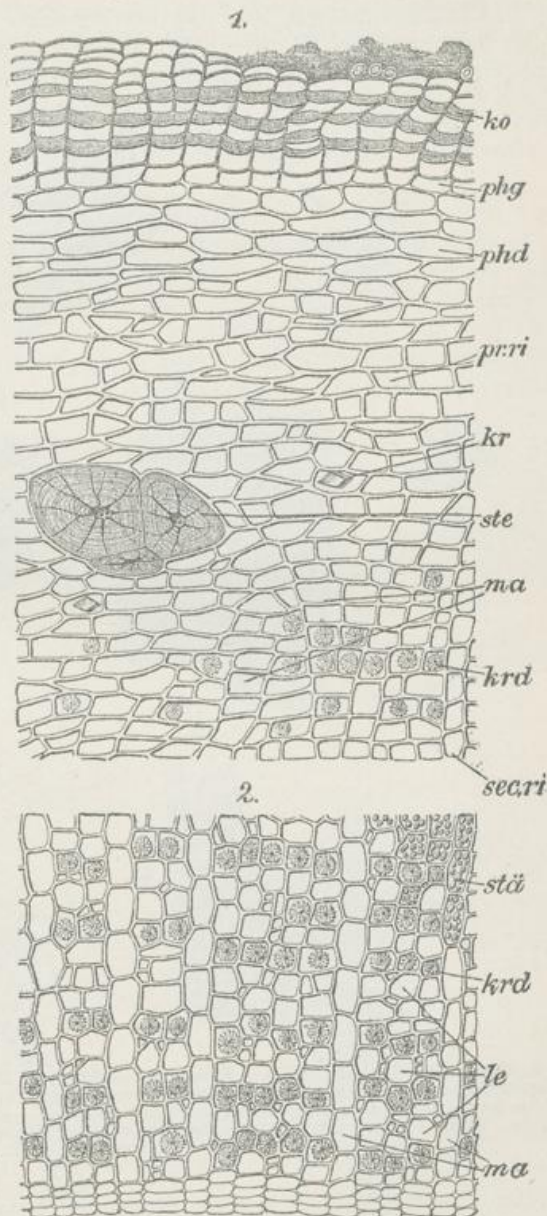 1.
ko
phg
phd
pr.ri
kr
ste
ma
krd
sec.ri
2.
stä
krd
le
ma